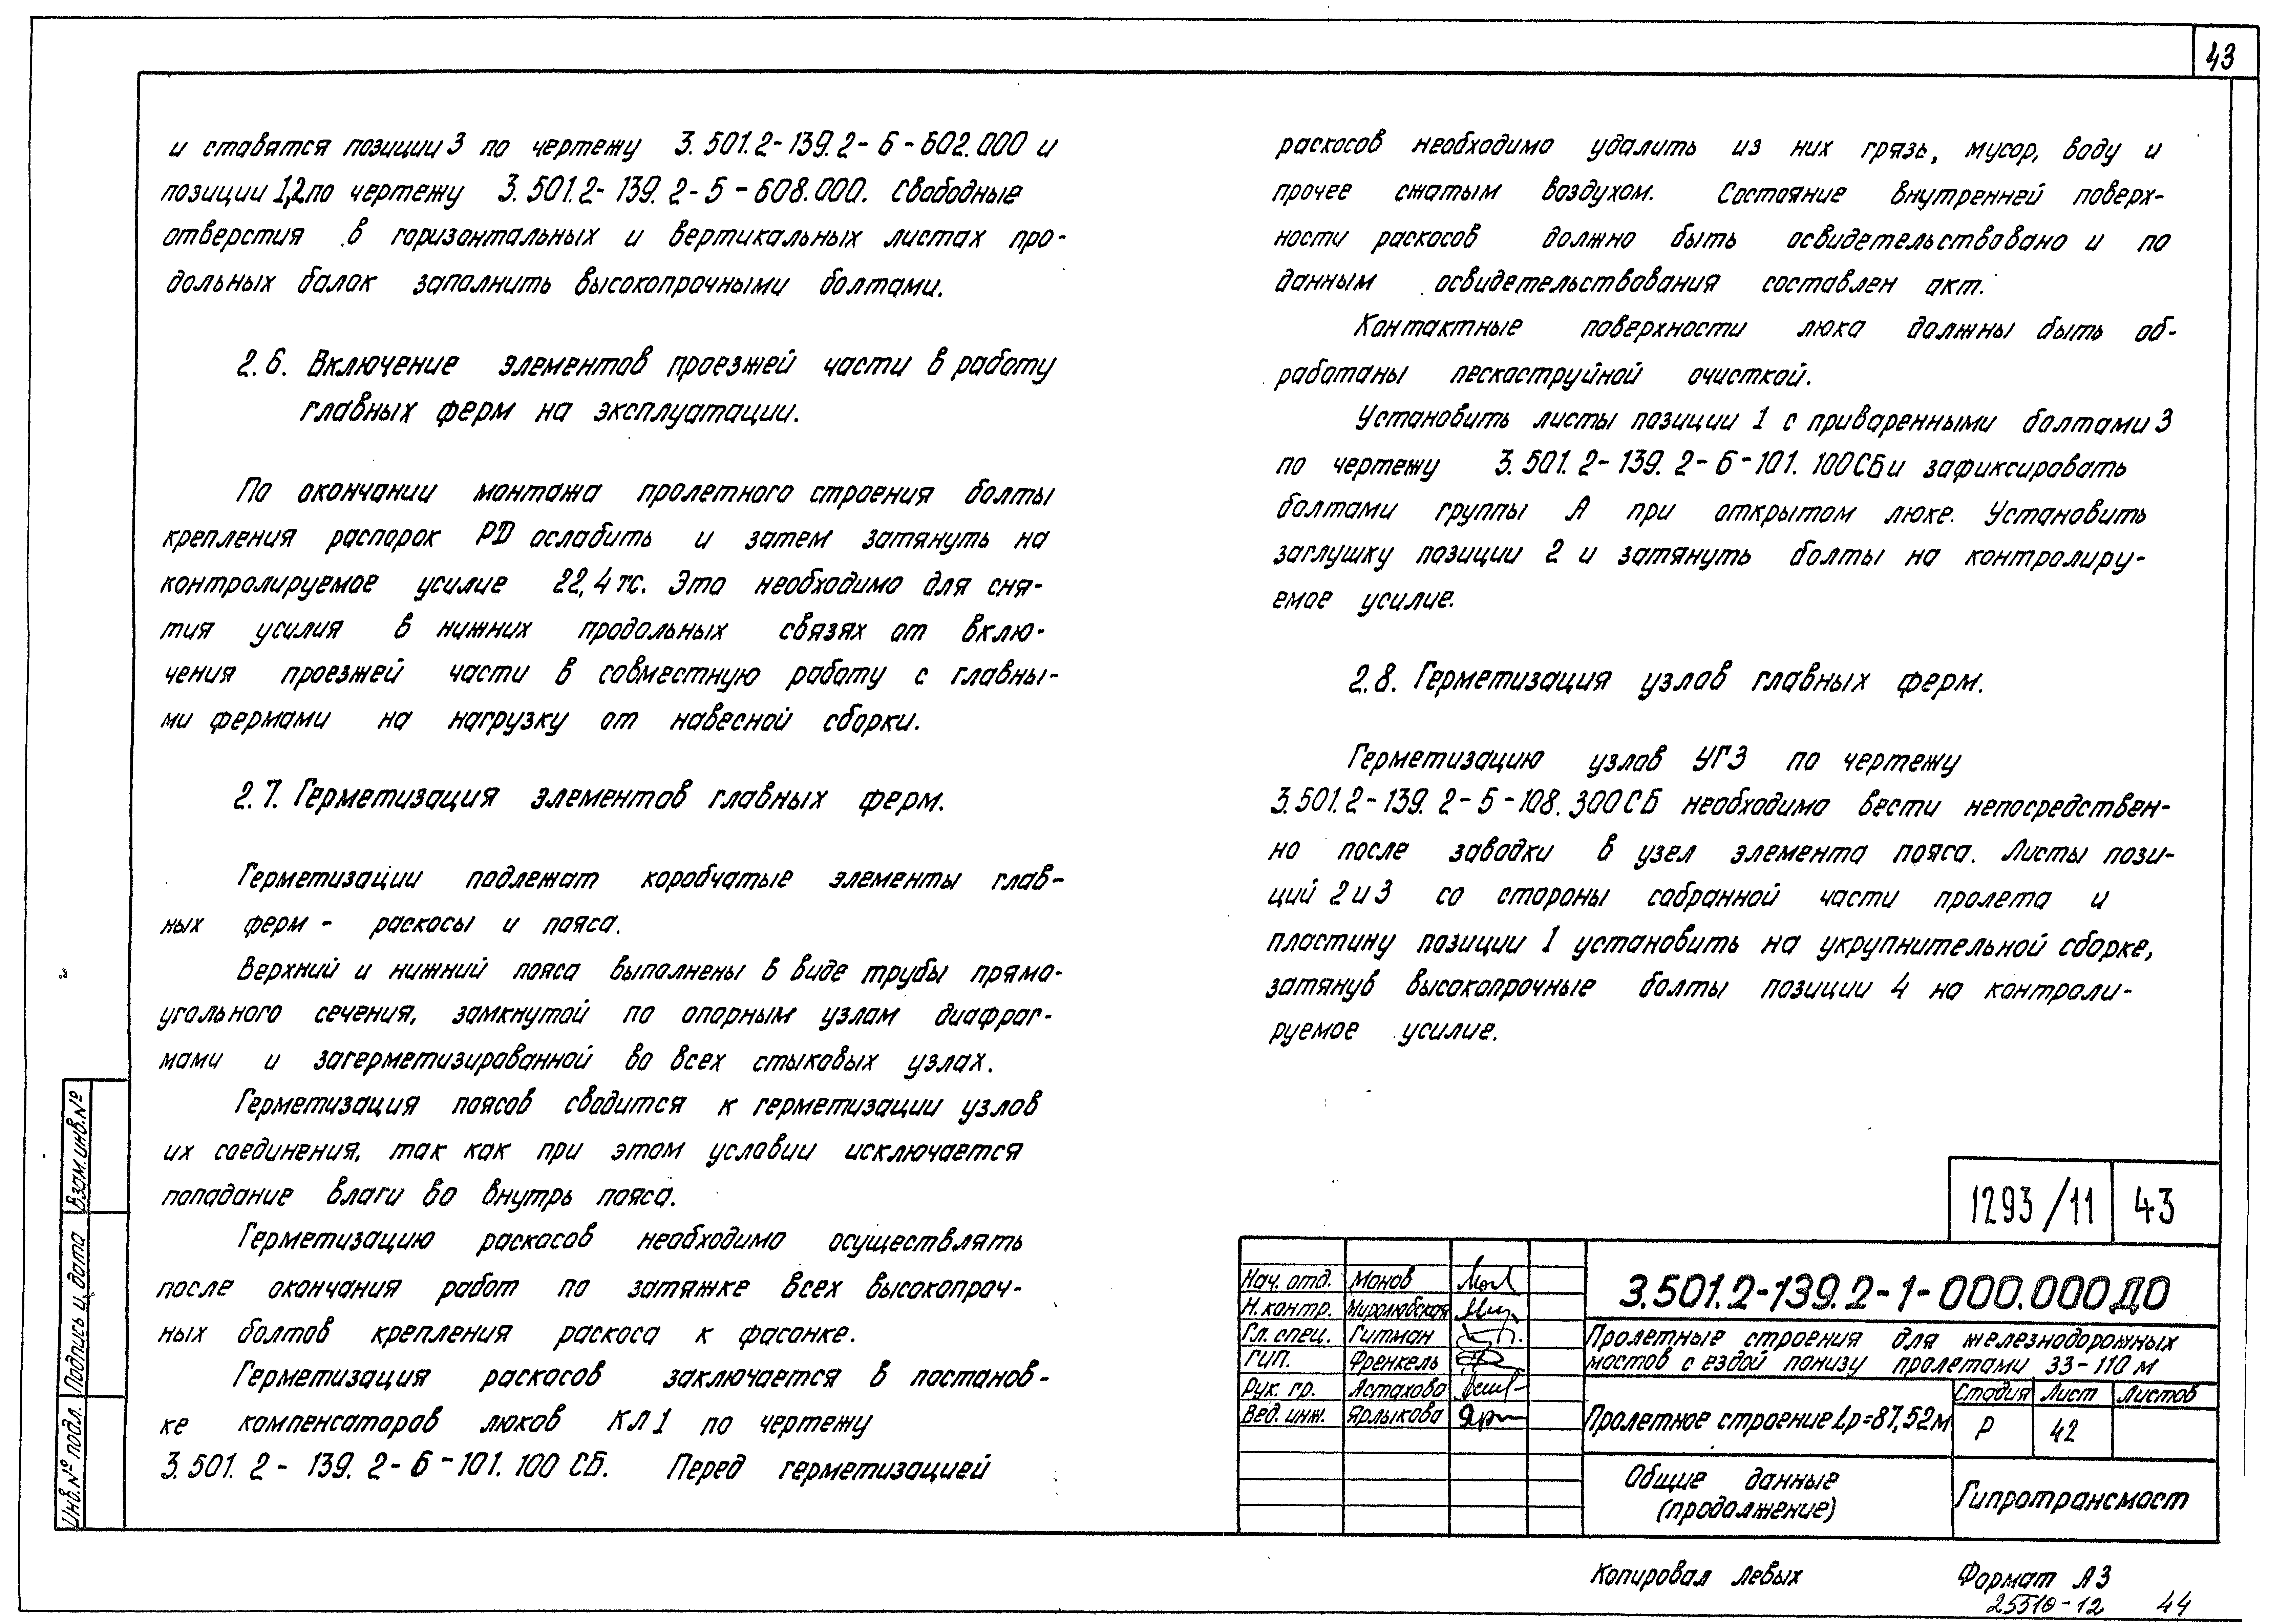 43
и ставятся позиции 3 по чертежу 3.501.2-139.2-6-602.000 и
позиции 1,2 по чертежу 3.501.2-139.2-5-608.000. Свободные
отверстия в горизонтальных и вертикальных листах про-
дольных балок заполнить высокопрочными болтами.
2.6. Включение элементов проезжей части в работу
главных ферм на эксплуатации.
По окончании монтажа пролетного строения болты
крепления распорок РД ослабить и затем затянуть на
контролируемое усилие 22,4 тс. Это необходимо для сня-
тия усилия в нижних продольных связях от вклю-
чения проезжей части в совместную работу с главны-
ми фермами на нагрузку от навесной сборки.
2.7. Герметизация элементов главных ферм.
Герметизации подлежат коробчатые элементы глав-
ных ферм - раскосы и пояса.
Верхний и нижний пояса выполнены в виде трубы прямо-
угольного сечения, замкнутой по опорным узлам диафраг-
мами и загерметизированной во всех стыковых узлах.
Герметизация поясов сводится к герметизации узлов
их соединения, так как при этом условии исключается
попадание влаги во внутрь пояса.
Герметизацию раскосов необходимо осуществлять
после окончания работ по затяжке всех высокопроч-
ных болтов крепления раскоса к фасонке.
Герметизация раскосов заключается в постанов-
ке компенсаторов люков КЛ1 по чертежу
3.501.2-139.2-6-101.100 СБ. Перед герметизацией
раскосов необходимо удалить из них грязь, мусор, воду и
прочее сжатым воздухом. Состояние внутренней поверх-
ности раскосов должно быть освидетельствовано и по
данным освидетельствования составлен акт.
Контактные поверхности люка должны быть об-
работаны пескоструйной очисткой.
Установить листы позиции 1 с приваренными болтами 3
по чертежу 3.501.2-139.2-6-101.100СБ и зафиксировать
болтами группы А при открытом люке. Установить
заглушку позиции 2 и затянуть болты на контролиру-
емое усилие.
2.8. Герметизация узлов главных ферм.
Герметизацию узлов УГ3 по чертежу
3.501.2-139.2-5-108.300СБ необходимо вести непосредствен-
но после заводки в узел элемента пояса. Листы пози-
ций 2 и 3 со стороны собранной части пролета и
пластину позиции 1 установить на укрупнительной сборке,
затянув высокопрочные болты позиции 4 на контроли-
руемое усилие.
1293/11 43
Нач. отд. Монов
Н.контр. Миролюбская
Гл. спец. Гитман
ГИП. Френкель
Рук. гр. Астахова
Вед. инж. Ярлыкова
3.501.2-139.2-1-000.000ДО
Пролетные строения для железнодорожных
мостов с ездой понизу пролетами 33-110 м
Пролетное строение Lр=87,52м
Стадия Лист Листов
Р 42
Общие данные
(продолжение)
Гипротрансмост
Инв.№ подл. Подпись и дата Взам.инв.№
Копировал Левых Формат А3
25510-12 44